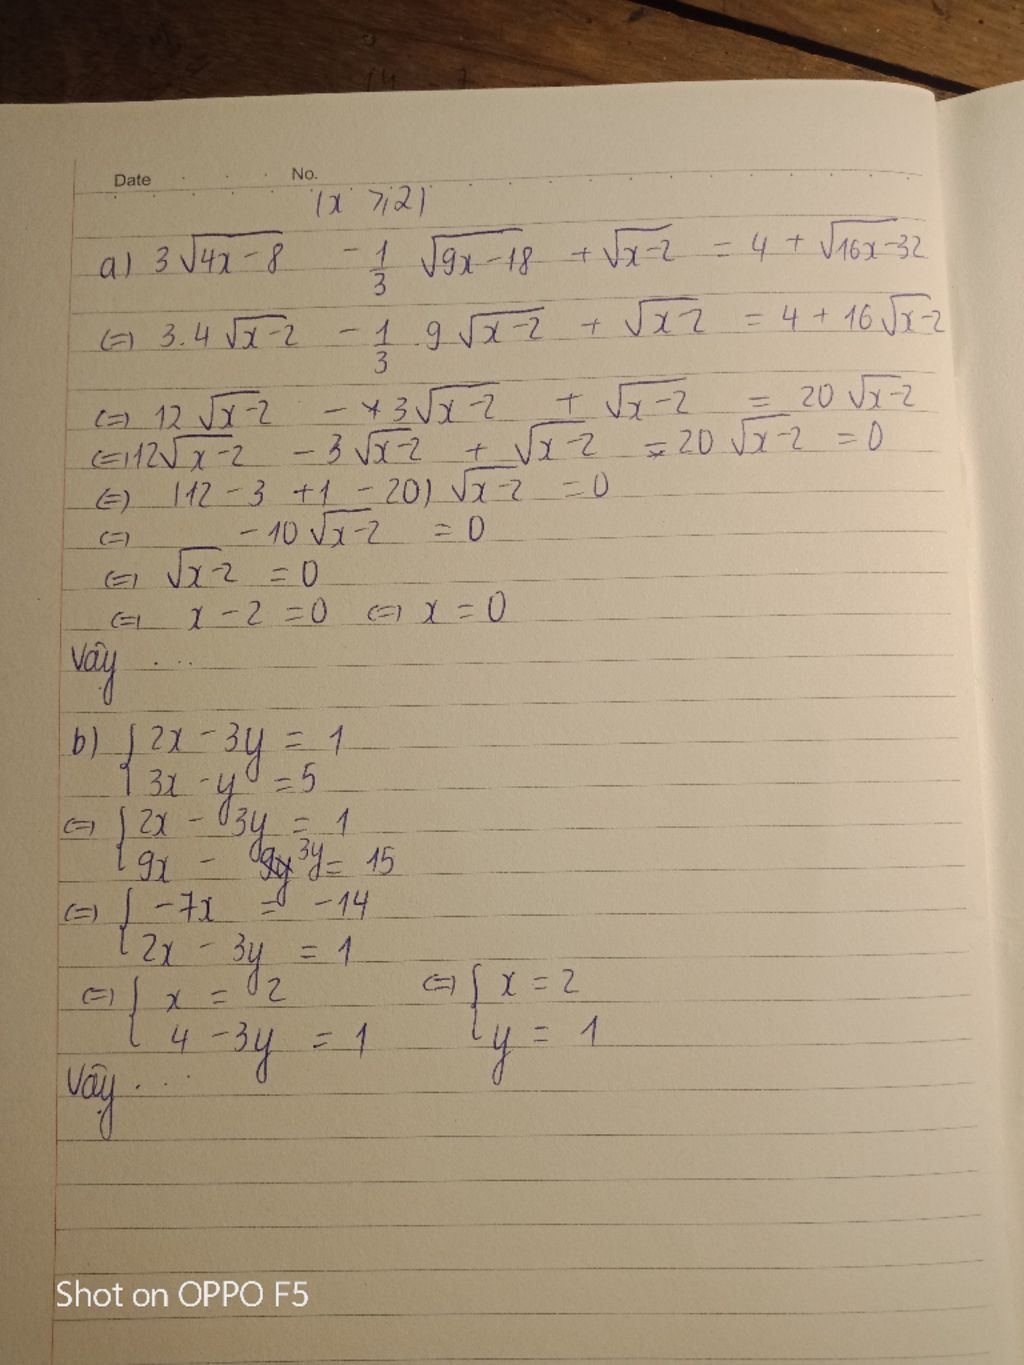 Date No.
(x ⩾ 2)
a) 3√4x-8 - 1/3 √9x-18 + √x-2 = 4 + √16x-32
(=) 3.4√x-2 - 1/3 . 9√x-2 + √x-2 = 4 + 16√x-2
(=) 12√x-2 - 3√x-2 + √x-2 = 20√x-2
(=) 12√x-2 - 3√x-2 + √x-2 - 20√x-2 = 0
(=) (12 - 3 + 1 - 20) √x-2 = 0
(=) -10√x-2 = 0
(=) √x-2 = 0
(=) x - 2 = 0 (=) x = 0
Vậy ...
b) { 2x - 3y = 1
3x - y = 5
(=) { 2x - 3y = 1
9x - 3y = 15
(=) { -7x = -14
2x - 3y = 1
(=) { x = 2 (=) { x = 2
4 - 3y = 1 y = 1
Vậy ...
Shot on OPPO F5